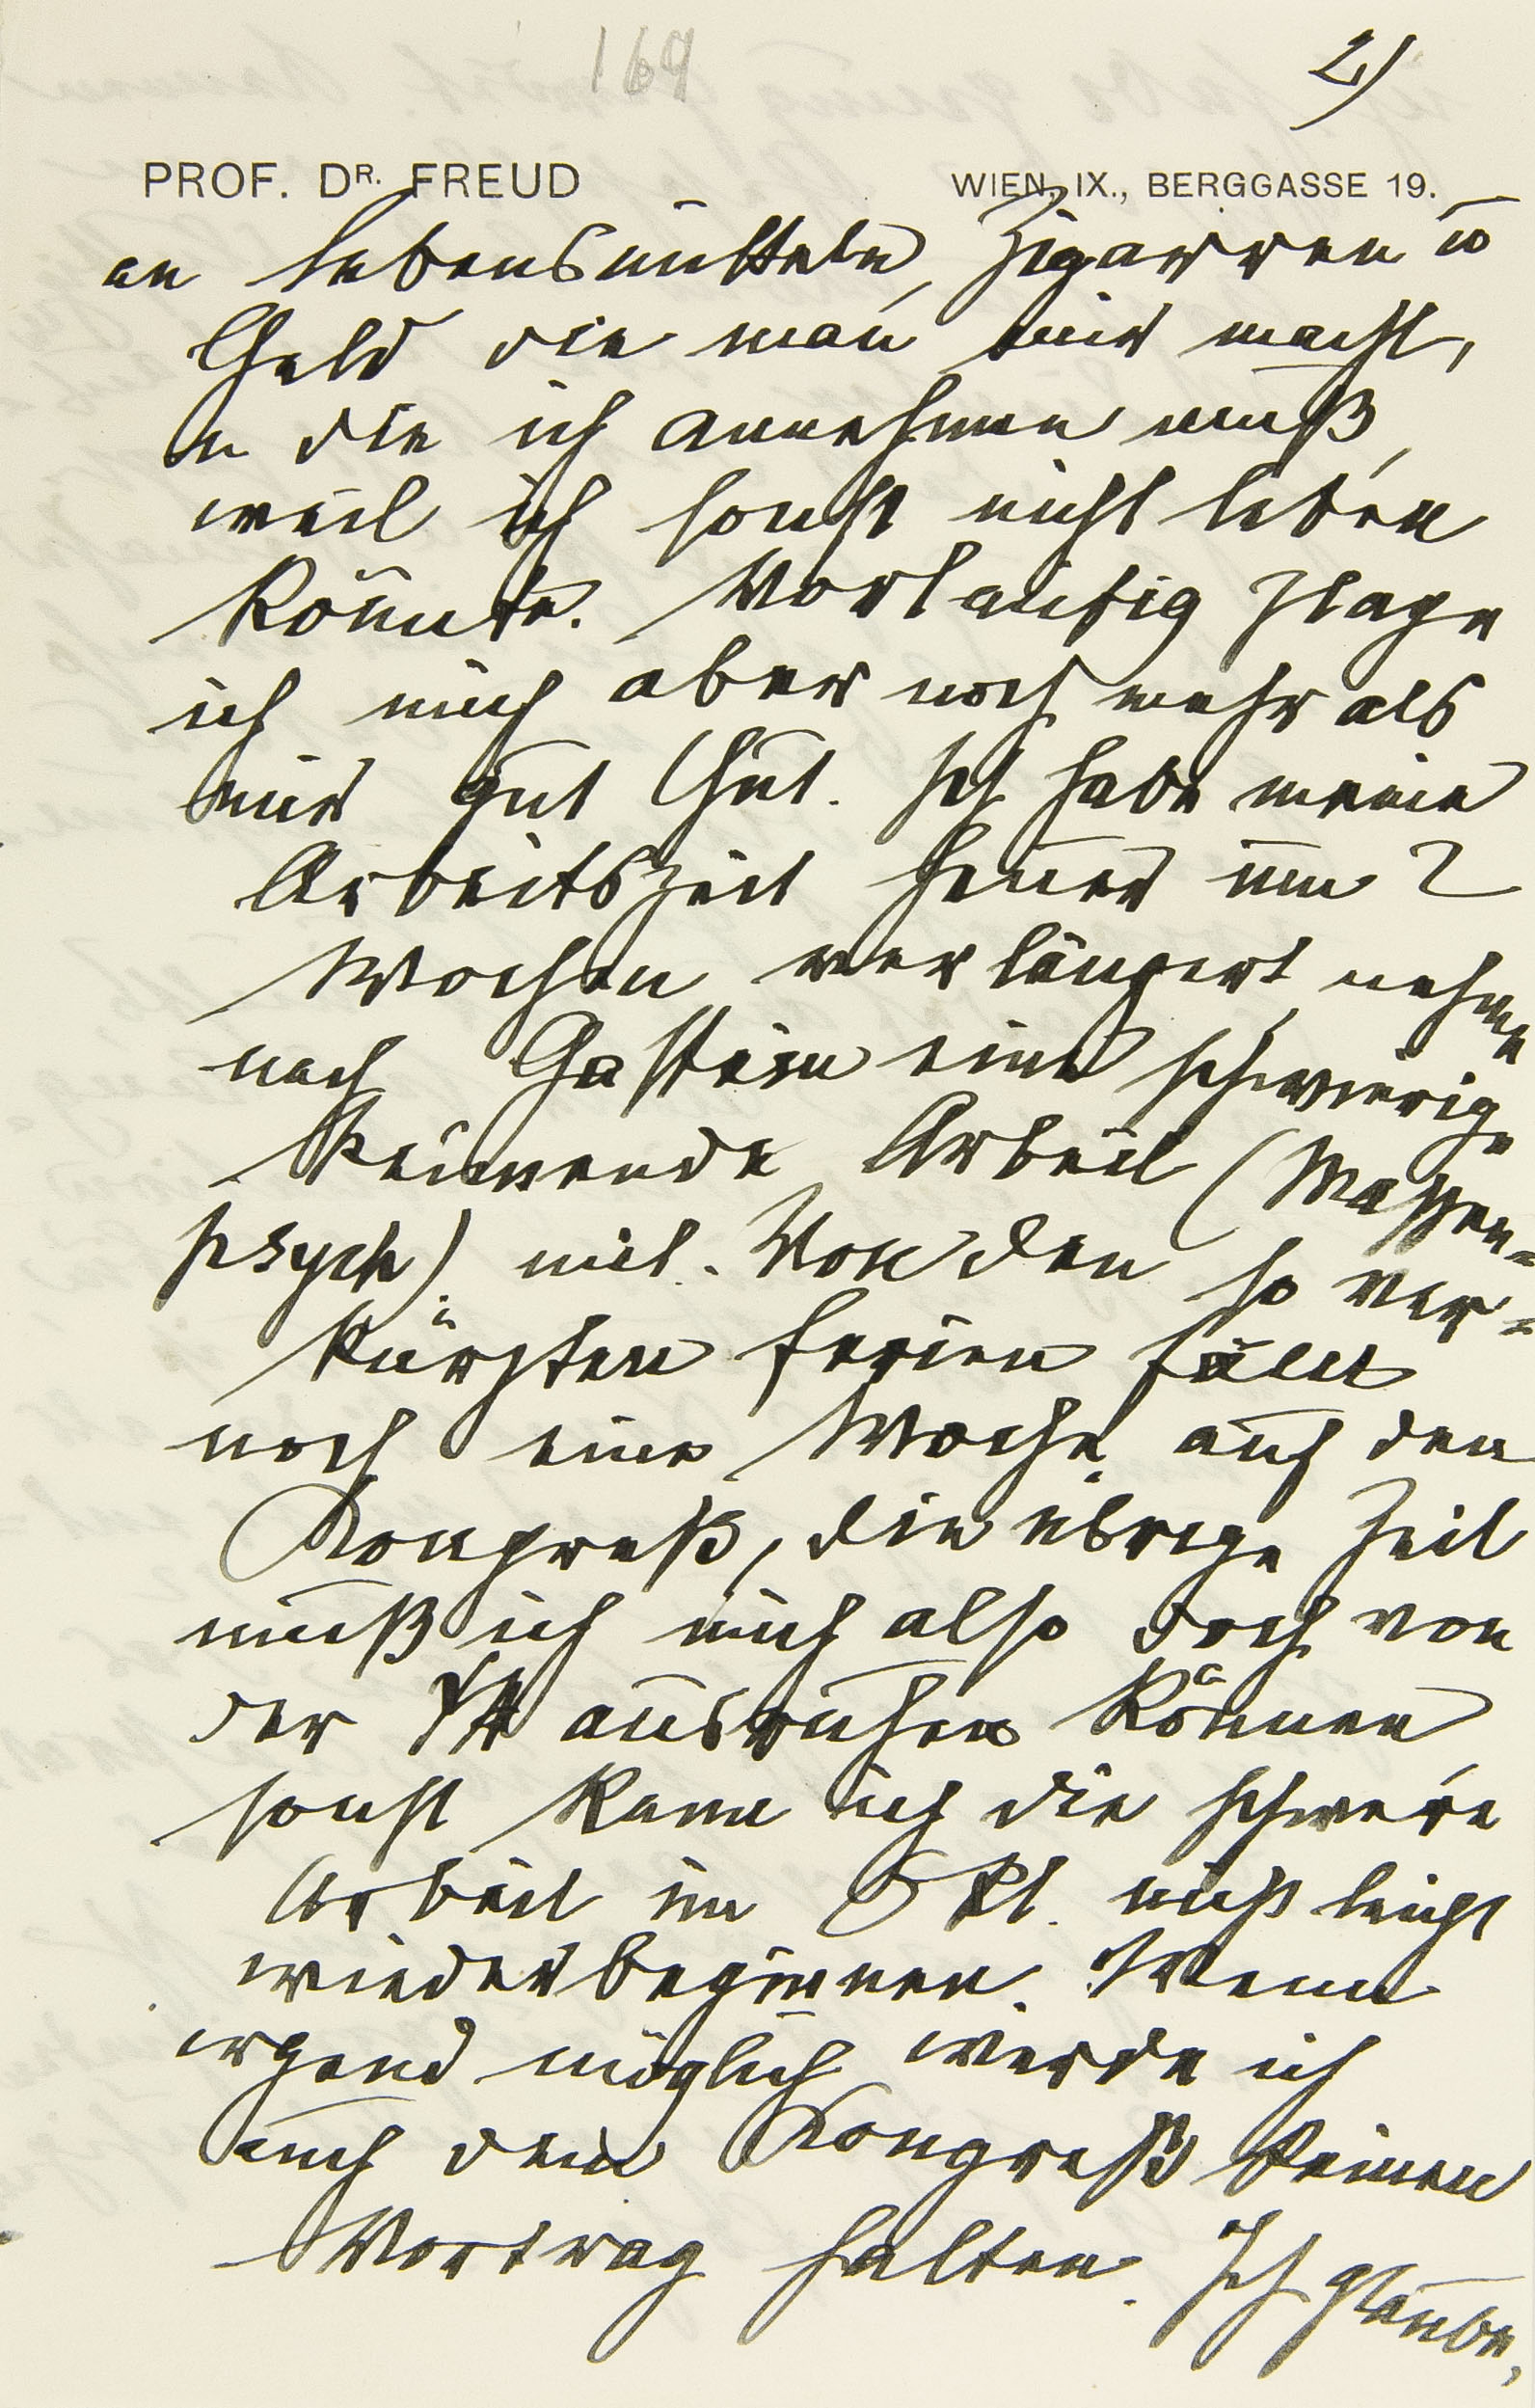 169
2)
PROF. DR. FREUD WIEN, IX., BERGGASSE 19.
an Lebensmitteln, Zigarren u
Geld die man mir macht,
u die ich annehmen muß,
weil ich sonst nicht leben
könnte. Vorläufig plage
ich mich aber noch mehr als
mir gut thut. Ich habe meine
Arbeitszeit heuer um 2
Wochen verlängert, nehme
nach Gastein eine schwierige
keimende Arbeit (Massen-
psych) mit. Von den so ver-
kürzten Ferien fällt
noch eine Woche auf den
Kongreß, die übrige Zeit
muß ich mich also doch von
der ΨA ausruhen können,
sonst kann ich die schwere
Arbeit im Okt. nicht leicht
wiederbeginnen. Wenn
irgend möglich, werde ich
auch dem Kongreß keinen
Vortrag halten. Ich glaube,